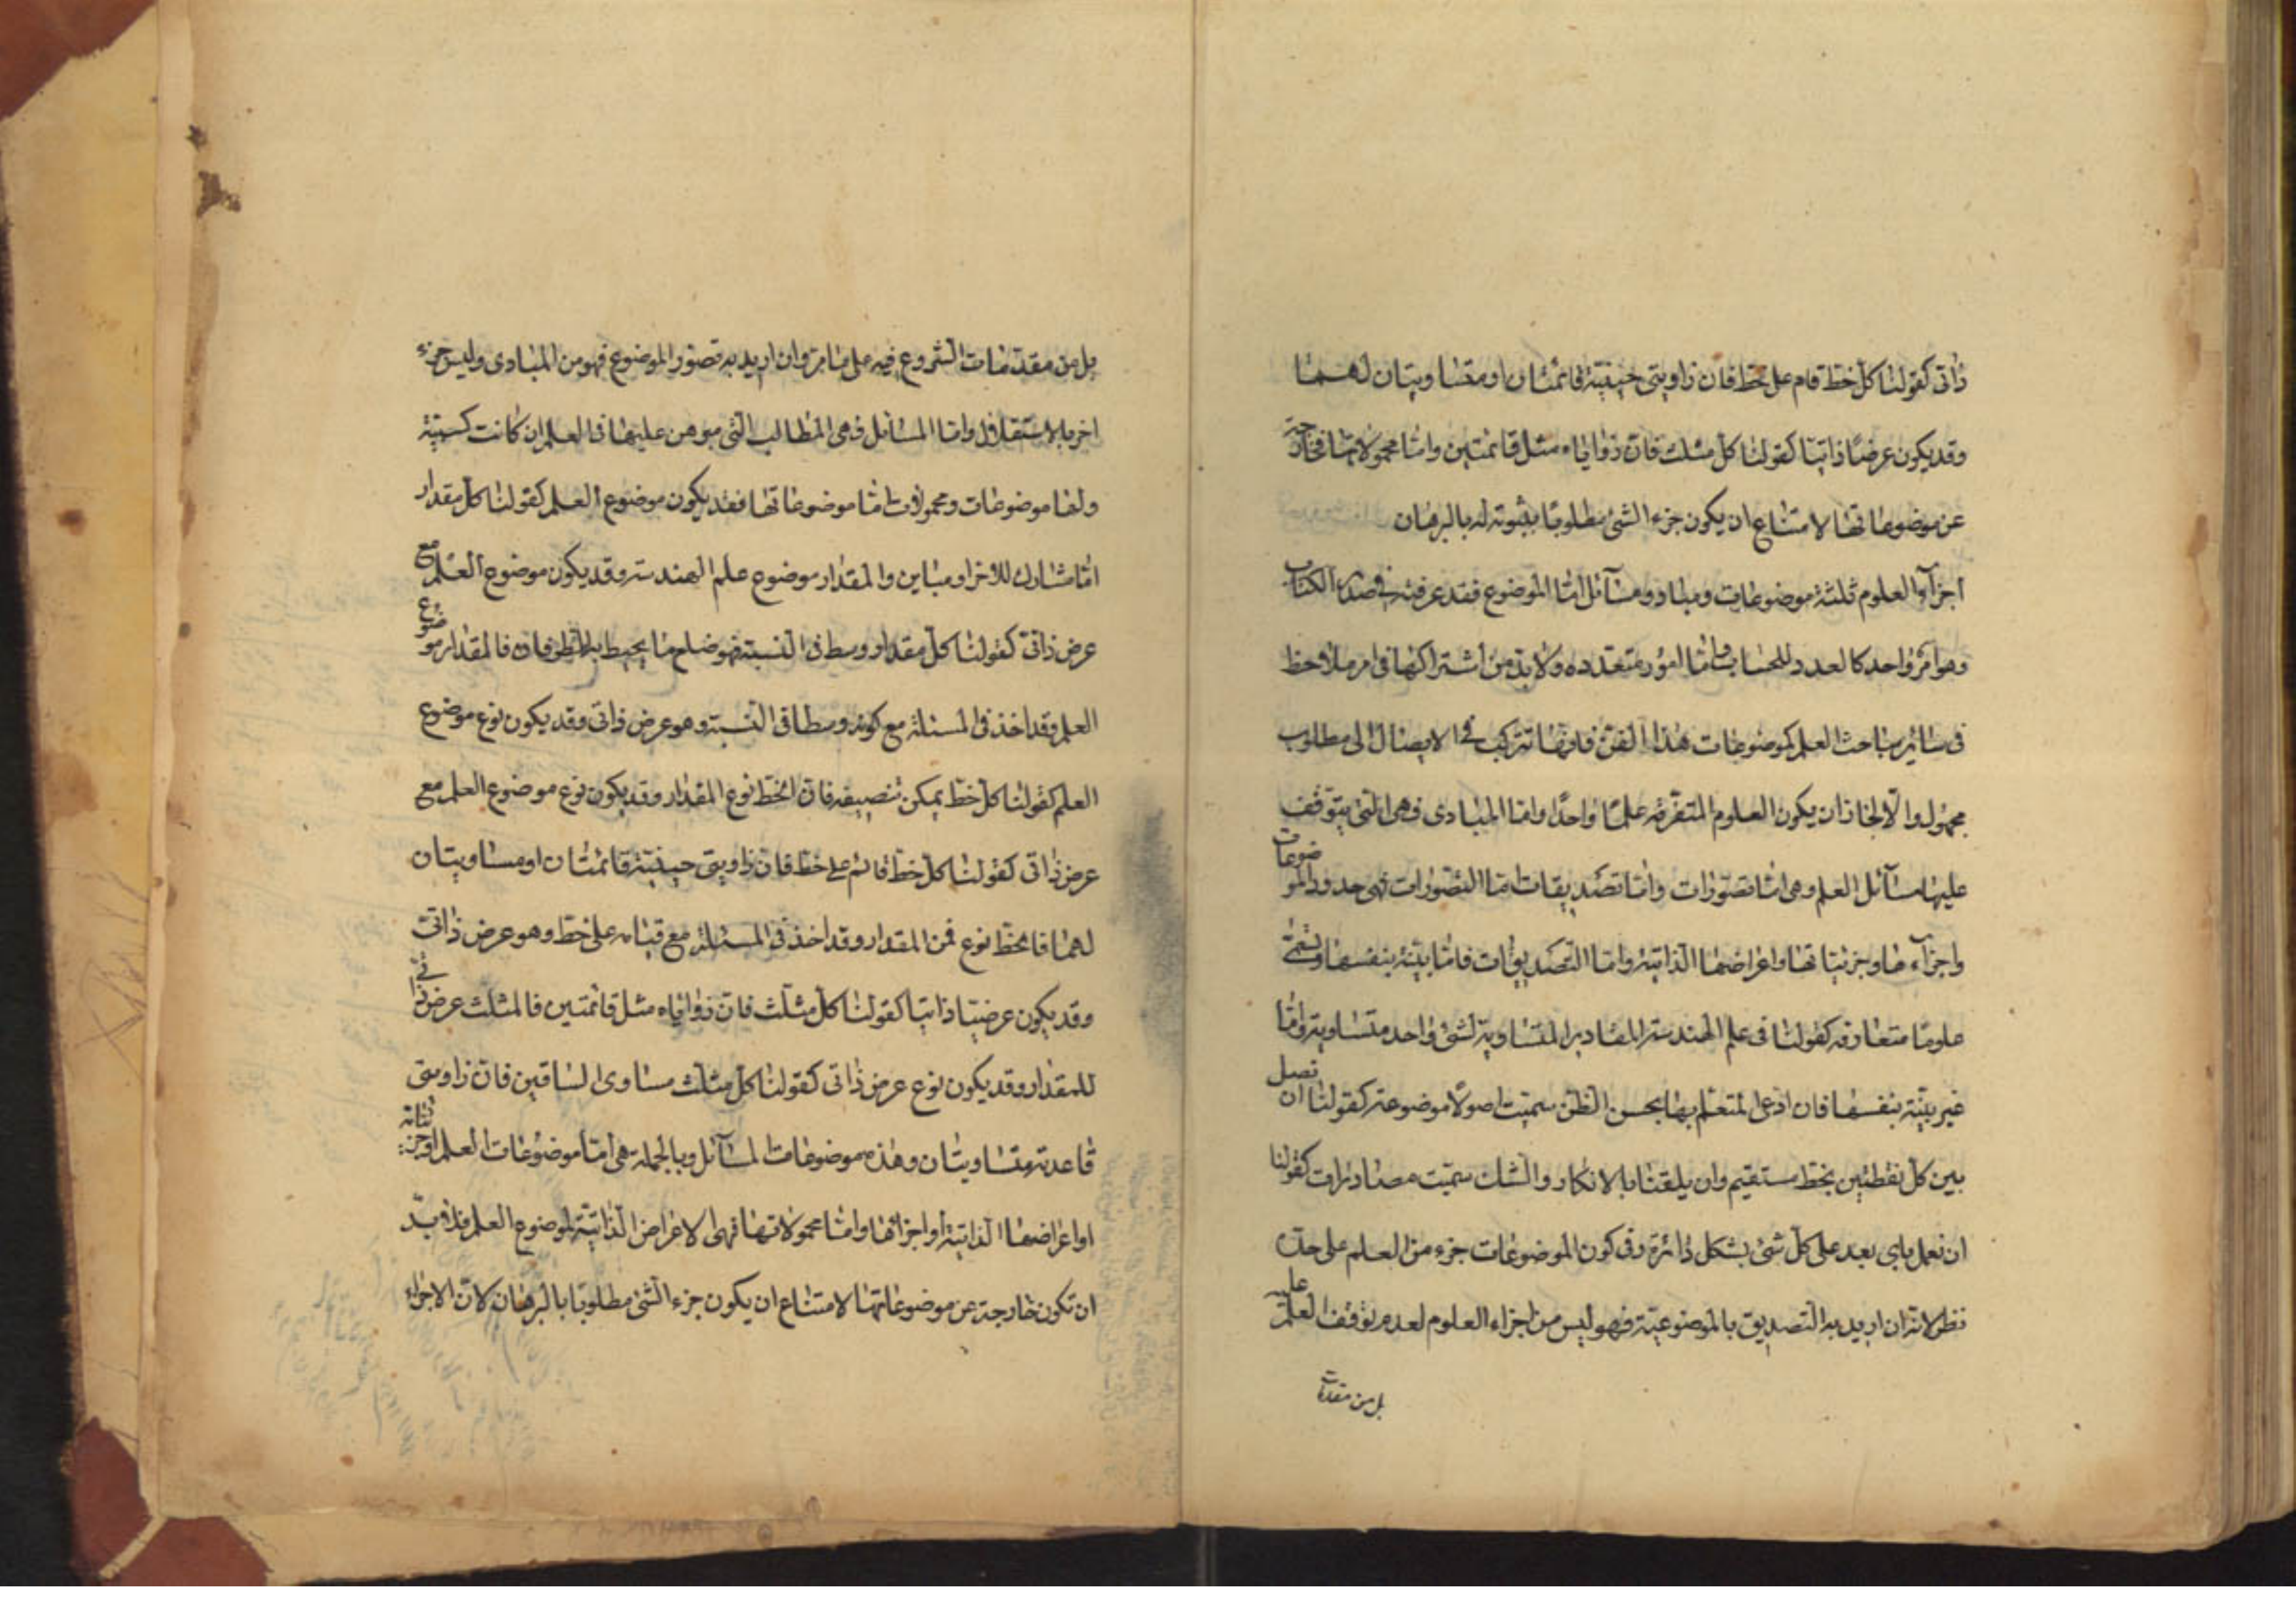 ذاتى كقولنا كل خط قام على خط فان زاويتى جنبتيه قائمتان او متساويتان لهما
وقد يكون عرضًا ذاتيا كقولنا كل مثلث فان زواياه مثل قائمتين واما محمولاتها فخارجة
عن موضوعاتها لامتناع ان يكون جزء الشئ مطلوبًا بثبوته له بالبرهان
اجزاء العلوم ثلثة موضوعات ومباد ومسائل اما الموضوع فقد عرفته فى صدر الكتاب
وهو امر واحد كالعدد للحساب واما امور متعدده ولا بد من اشتراكها فى امر ملاحظ
فى سائر مباحث العلم كموضوعات هذا الفن فانها تشترك فى الايصال الى مطلوب
مجهول والا لجاز ان يكون العلوم المتفرقه علمًا واحدًا واما المبادى فهى التى يتوقف
عليها مسائل العلم وهى اما تصورات واما تصديقات اما التصورات فهى حدود الموضوعات
واجزاءها وجزئياتها واعراضها الذاتية واما التصديقات فاما بينة بنفسها وتسمى
علومًا متعارفه كقولنا فى علم الهندسة المقادير المتساوية لشئ واحد متساوية واما
غير بينة بنفسها فان اذعن المتعلم بها بحسن الظن سميت اصولًا موضوعة كقولنا ان نصل
بين كل نقطتين بخط مستقيم وان يلقنا بالانكار والشك سميت مصادرات كقولنا
ان نعمل باى بعد على كل شئ بشكل دائرة وفى كون الموضوعات جزء من العلم على حدة
نظر لانه ان اريد به التصديق بالموضوعية فهو ليس من اجزاء العلوم لعدم توقف العلم عليه
بل من مقدمات
بل من مقدمات الشروع فيه على ما مر وان اريد به تصور الموضوع فهو من المبادى وليس جزء
اخر بالاستقلال واما المسائل فهى المطالب التى يبرهن عليها فى العلم ان كانت كسبية
ولها موضوعات ومحمولات اما موضوعاتها فقد يكون موضوع العلم كقولنا كل مقدار
اما مشارك للاخر او مباين والمقدار موضوع علم الهندسة وقد يكون موضوع العلم مع
عرض ذاتى كقولنا كل مقدار وسط فى النسبة فهو ضلع ما يحيط به الطرفان فالمقدار موضوع
العلم وقد اخذ فى المسئلة مع كونه وسطا فى النسبة وهو عرض ذاتى وقد يكون نوع موضوع
العلم كقولنا كل خط يمكن تنصيفه فان الخط نوع المقدار وقد يكون نوع موضوع العلم مع
عرض ذاتى كقولنا كل خط قائم على خط فان زاويتى جنبتيه قائمتان او مساويتان
لهما فالخط نوع من المقدار وقد اخذ فى المسئلة مع قيامه على خط وهو عرض ذاتى
وقد يكون عرضيا ذاتيا كقولنا كل مثلث فان زواياه مثل قائمتين فالمثلث عرض ذاتى
للمقدار وقد يكون نوع عرض ذاتى كقولنا كل مثلث مساوى الساقين فان زاويتى
قاعدته متساويتان وهذه موضوعات المسائل وبالجملة هى اما موضوعات العلم او جزئياته
او اعراضها الذاتية او اجزائها واما محمولاتها فهى الاعراض الذاتية لموضوع العلم فلا بد
ان تكون خارجة عن موضوعاتها لامتناع ان يكون جزء الشئ مطلوبا بالبرهان لان الاجزاء